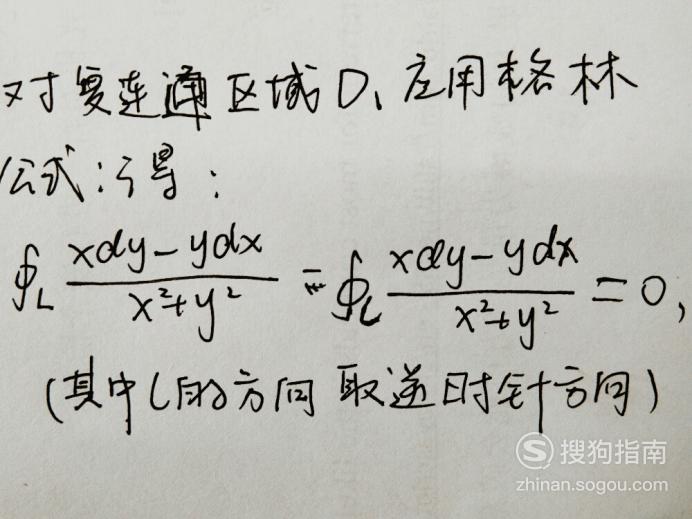 对复连通区域D₁应用格林
公式,可得:
∮_L (xdy-ydx)/(x²+y²) - ∮_l (xdy-ydx)/(x²+y²) = 0,
(其中l的方向取逆时针方向)
搜狗指南
zhinan.sogou.com